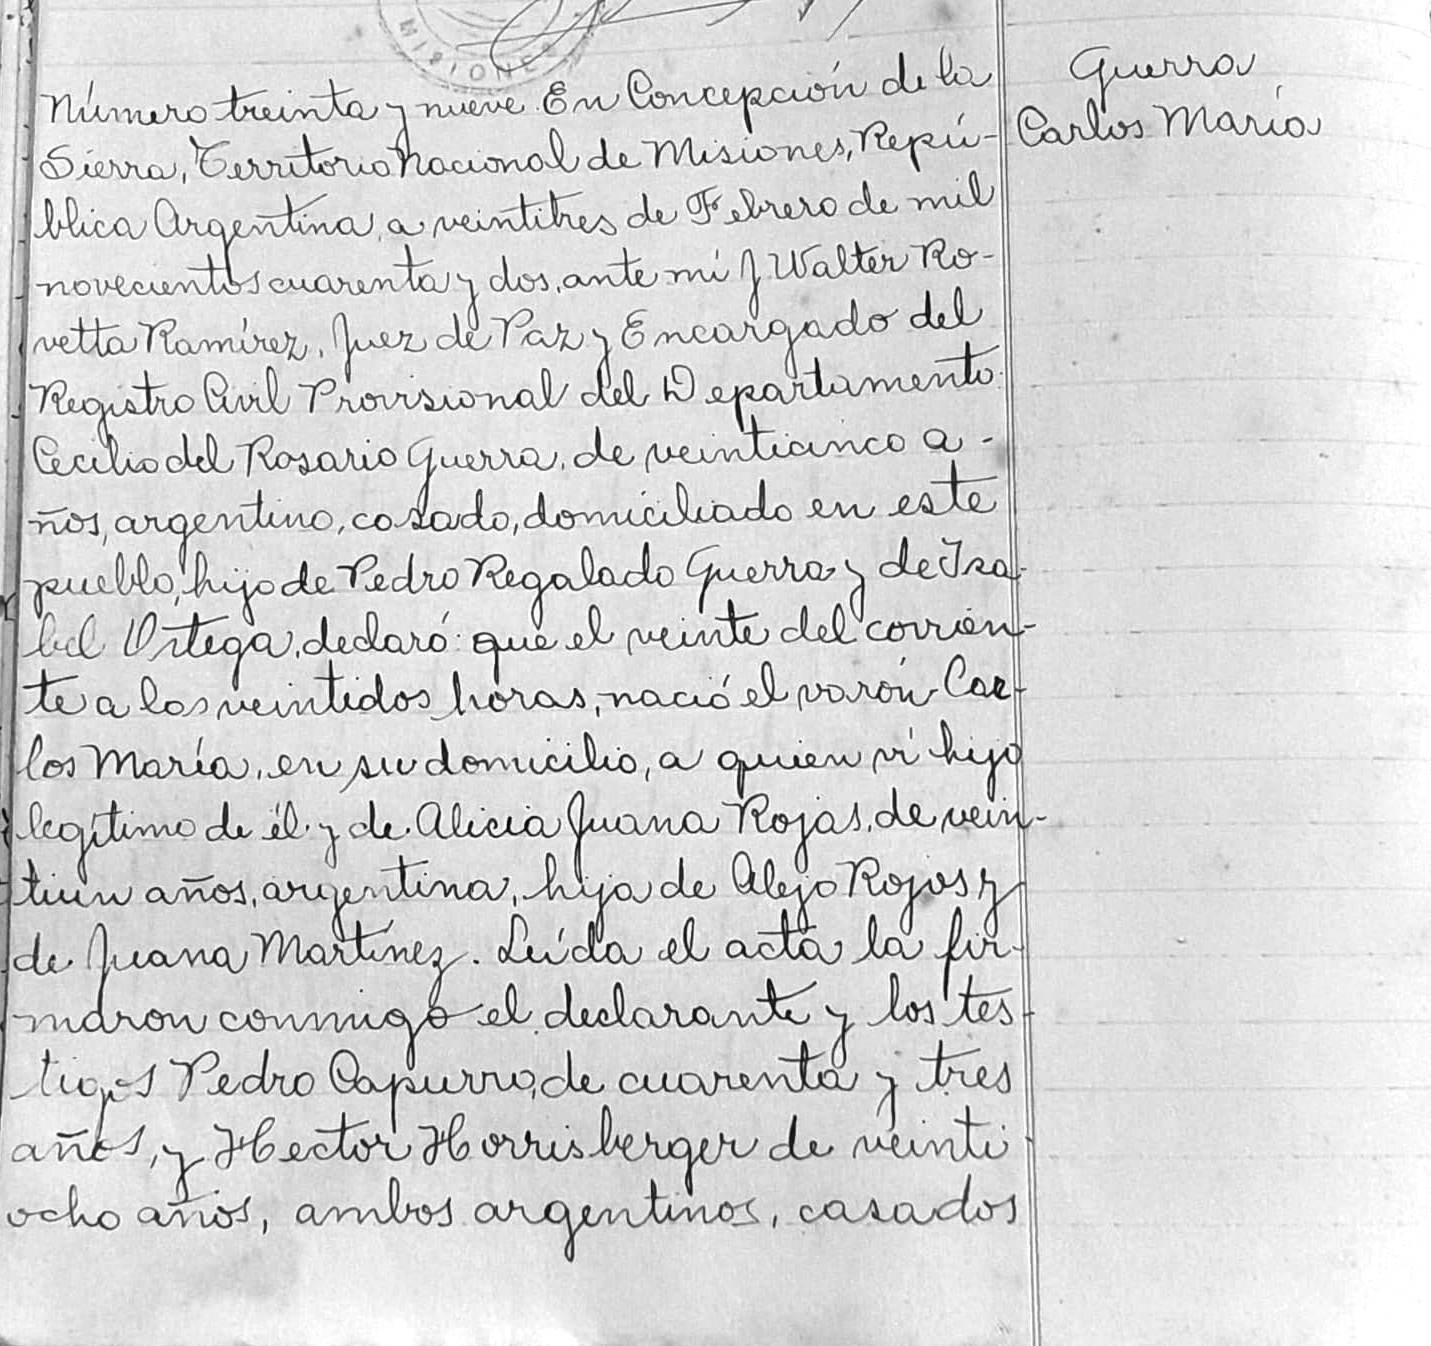 MISIONES
Número treinta y nueve. En Concepción de la
Sierra, Territorio Nacional de Misiones, Repú-
blica Argentina, a veintitres de Febrero de mil
novecientos cuarenta y dos, ante mí J Walter Ro-
vetta Ramírez, Juez de Paz y Encargado del
Registro Civil Provisional del Departamento:
Cecilio del Rosario Guerra, de veinticinco a-
ños, argentino, casado, domiciliado en este
pueblo, hijo de Pedro Regalado Guerra y de Isa-
bel Ortega, declaró: que el veinte del corrien-
te a las veintidos horas, nació el varón Car-
los María, en su domicilio, a quien ví hijo
legítimo de él y de Alicia Juana Rojas, de vein-
tiun años, argentina, hija de Alejo Rojas y
de Juana Martínez. Leída el acta la fir-
maron conmigo el declarante y los tes-
tigos Pedro Capurro, de cuarenta y tres
años, y Hector Horrisberger de veinti
ocho años, ambos argentinos, casados
Guerra
Carlos María